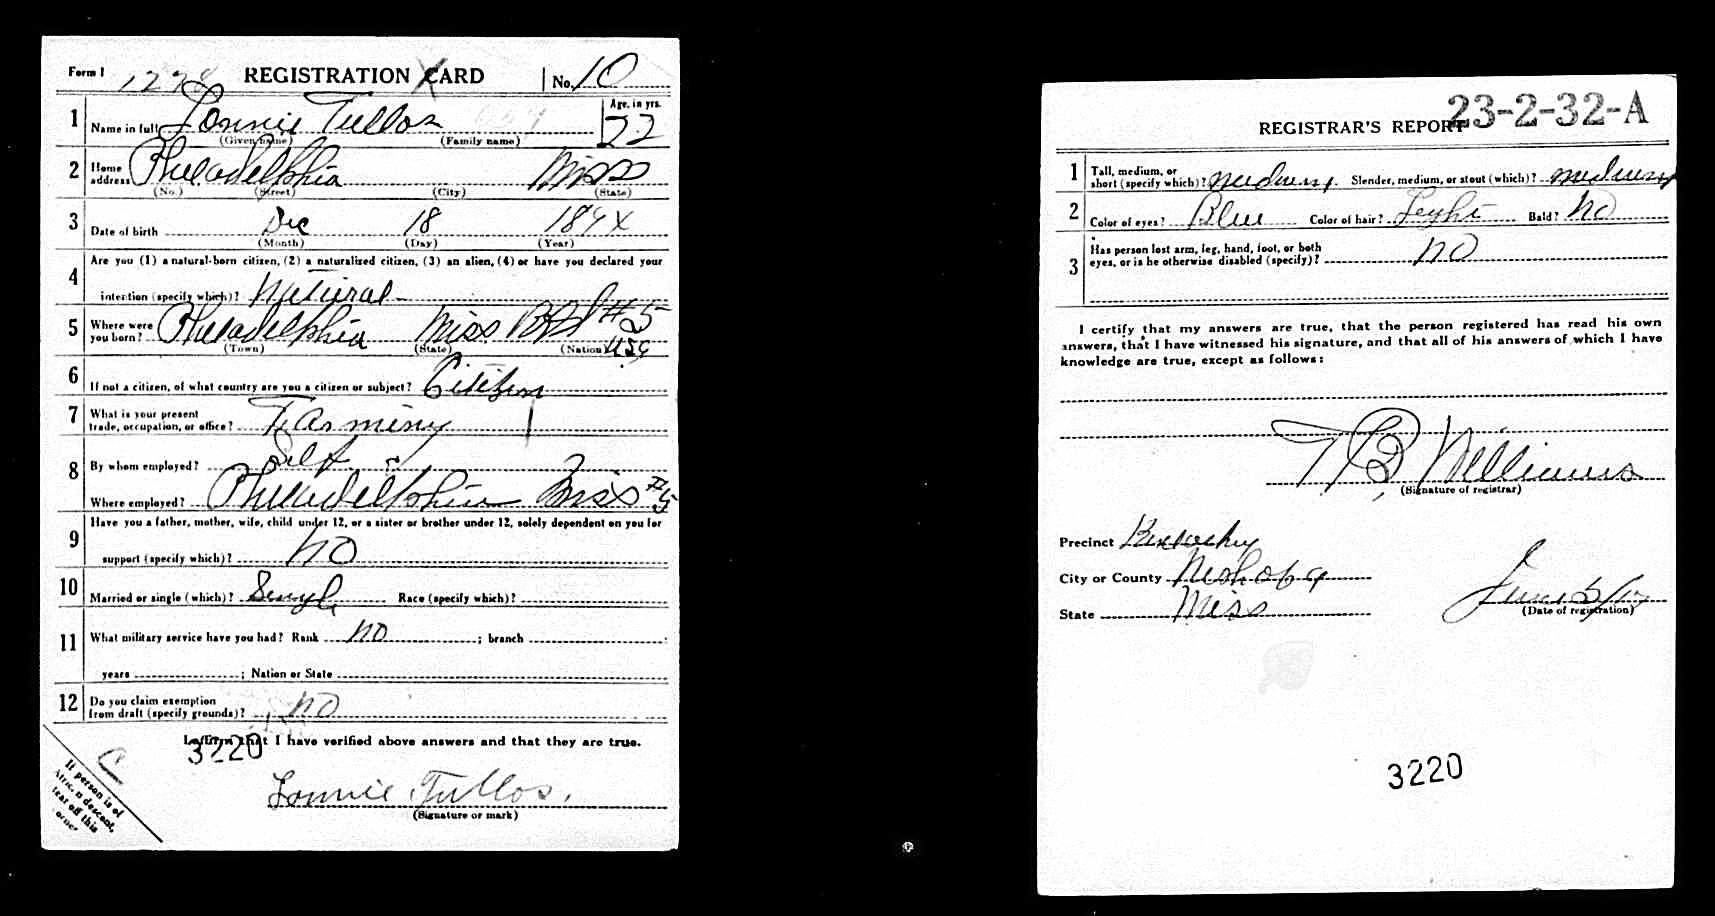 Form 1 1228 REGISTRATION CARD No. 10
1 Name in full Lonnie Tullos Age, in yrs. 22
(Given name) (Family name)
2 Home address Philadelphia Miss
(No.) (Street) (City) (State)
3 Date of birth Dec 18 189
(Month) (Day) (Year)
4 Are you (1) a natural-born citizen, (2) a naturalized citizen, (3) an alien, (4) or have you declared your
intention (specify which)? Natural
5 Where were you born? Philadelphia Miss #5 USA
(Town) (State) (Nation)
6 If not a citizen, of what country are you a citizen or subject? Citizen
7 What is your present
trade, occupation, or office? Farming
8 By whom employed? Self
Where employed? Philadelphia Miss #5
9 Have you a father, mother, wife, child under 12, or a sister or brother under 12, solely dependent on you for
support (specify which)? no
10 Married or single (which)? Singl Race (specify which)?
11 What military service have you had? Rank no ; branch
years ; Nation or State
12 Do you claim exemption
from draft (specify grounds)? no
I affirm that I have verified above answers and that they are true.
3220
Lonnie Tullos.
(Signature or mark)
If person is of
African descent,
tear off this
corner
23-2-32-A
REGISTRAR'S REPORT
1 Tall, medium, or
short (specify which)? medium Slender, medium, or stout (which)? medium
2 Color of eyes? Blue Color of hair? Leght Bald? No
3 Has person lost arm, leg, hand, foot, or both
eyes, or is he otherwise disabled (specify)? no
I certify that my answers are true, that the person registered has read his own
answers, that I have witnessed his signature, and that all of his answers of which I have
knowledge are true, except as follows:
T B Williams
(Signature of registrar)
Precinct
City or County Neshoba
State Miss
June 5/17
(Date of registration)
3220